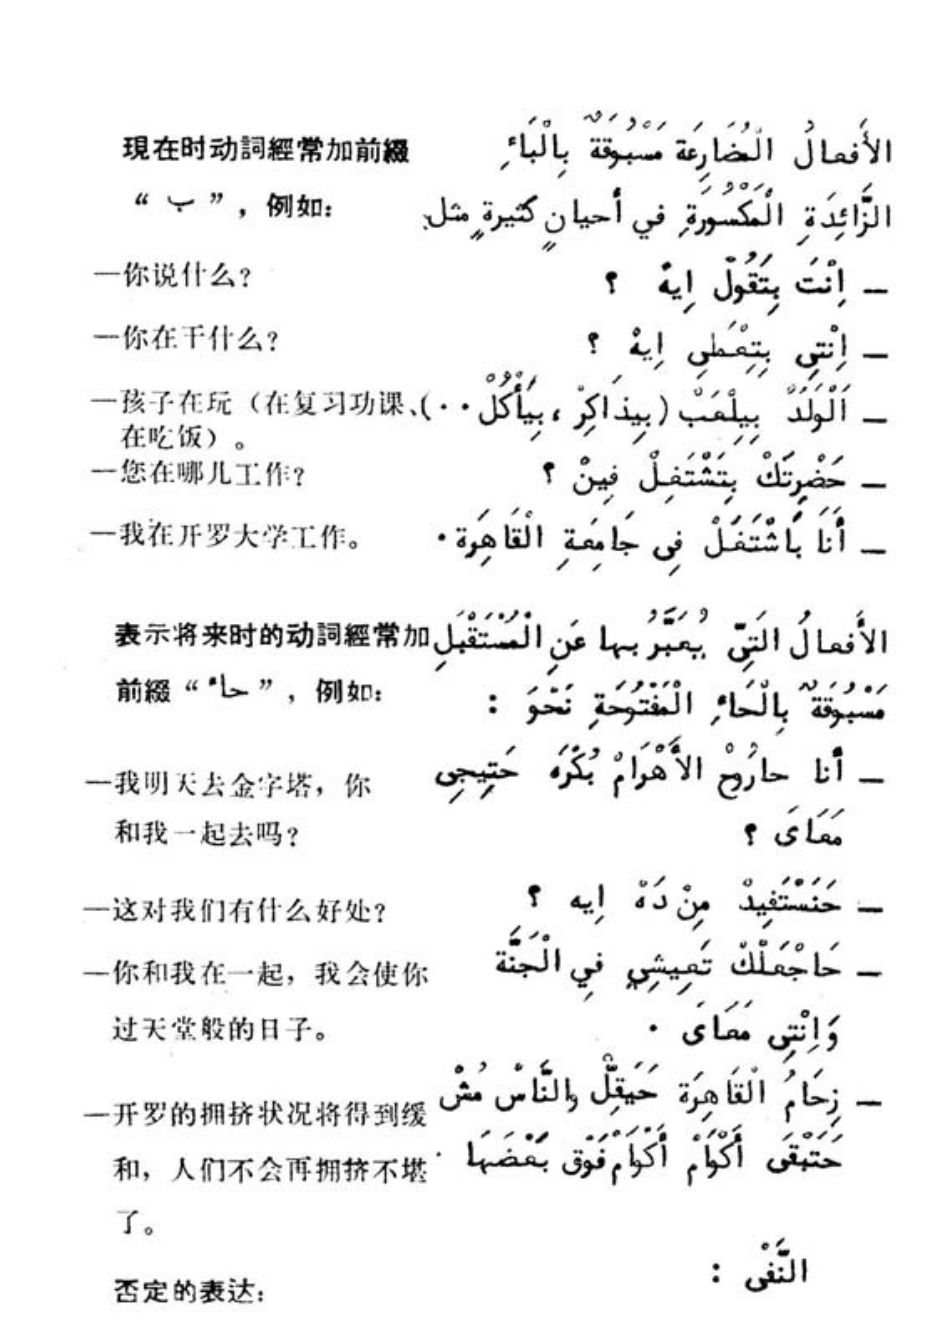 現在时动詞經常加前綴 الأَفعالُ الْمُضَارِعَة مَسْبُوقَةٌ بِالْبَاءِ
“ ب ”，例如： الزَّائِدَةِ الْمَكْسُورَةِ في أَحيانٍ كثيرةٍ مثل:
—你说什么？ — اِنْتَ بِتَقُولْ اِيهْ ؟
—你在干什么？ — اِنْتِي بِتِعْمَلِي اِيهْ ؟
—孩子在玩（在复习功课、 — اَلْوَلَدْ بِيِلْعَبْ (بِيذَاكِرْ ، بِيَأْكُلْ ··)
在吃饭）。
—您在哪儿工作？ — حَضْرِتَكْ بِتَشْتَغِلْ فِينْ ؟
—我在开罗大学工作。 — أَنَا بَاشْتَغَلْ فِى جَامِعَةِ الْقَاهِرَةِ ·
表示将来时的动詞經常加 الأَفعالُ الَتِىّ يُعَبَّرُ بها عَنِ الْمُسْتَقْبَلِ
前綴“ حاء ”，例如： مَسْبُوقَةٌ بِالْحَاءِ الْمَفْتُوحَةِ نَحْوَ :
—我明天去金字塔，你 — أَنا حارُوحْ الأَهْرَامْ بُكْرَه حَتِيجِى
和我一起去吗？ مَعَاىَ ؟
—这对我们有什么好处？ — حَنَسْتَفِيدْ مِنْ دَهْ اِيه ؟
—你和我在一起，我会使你 — حَاجْعَلْكْ تَعِيشِي فِي الْجَنَّة
过天堂般的日子。 وَاِنْتِى مَعَاىَ ·
—开罗的拥挤状况将得到缓 — زِحَامُ الْقَاهِرَة حَيَقِلّْ والنَّاسْ مُشْ
和，人们不会再拥挤不堪 حَتَبْقَى أَكْوَامْ أَكْوَامْ فَوْق بَعْضَهَا ·
了。
否定的表达： النَّفْى :